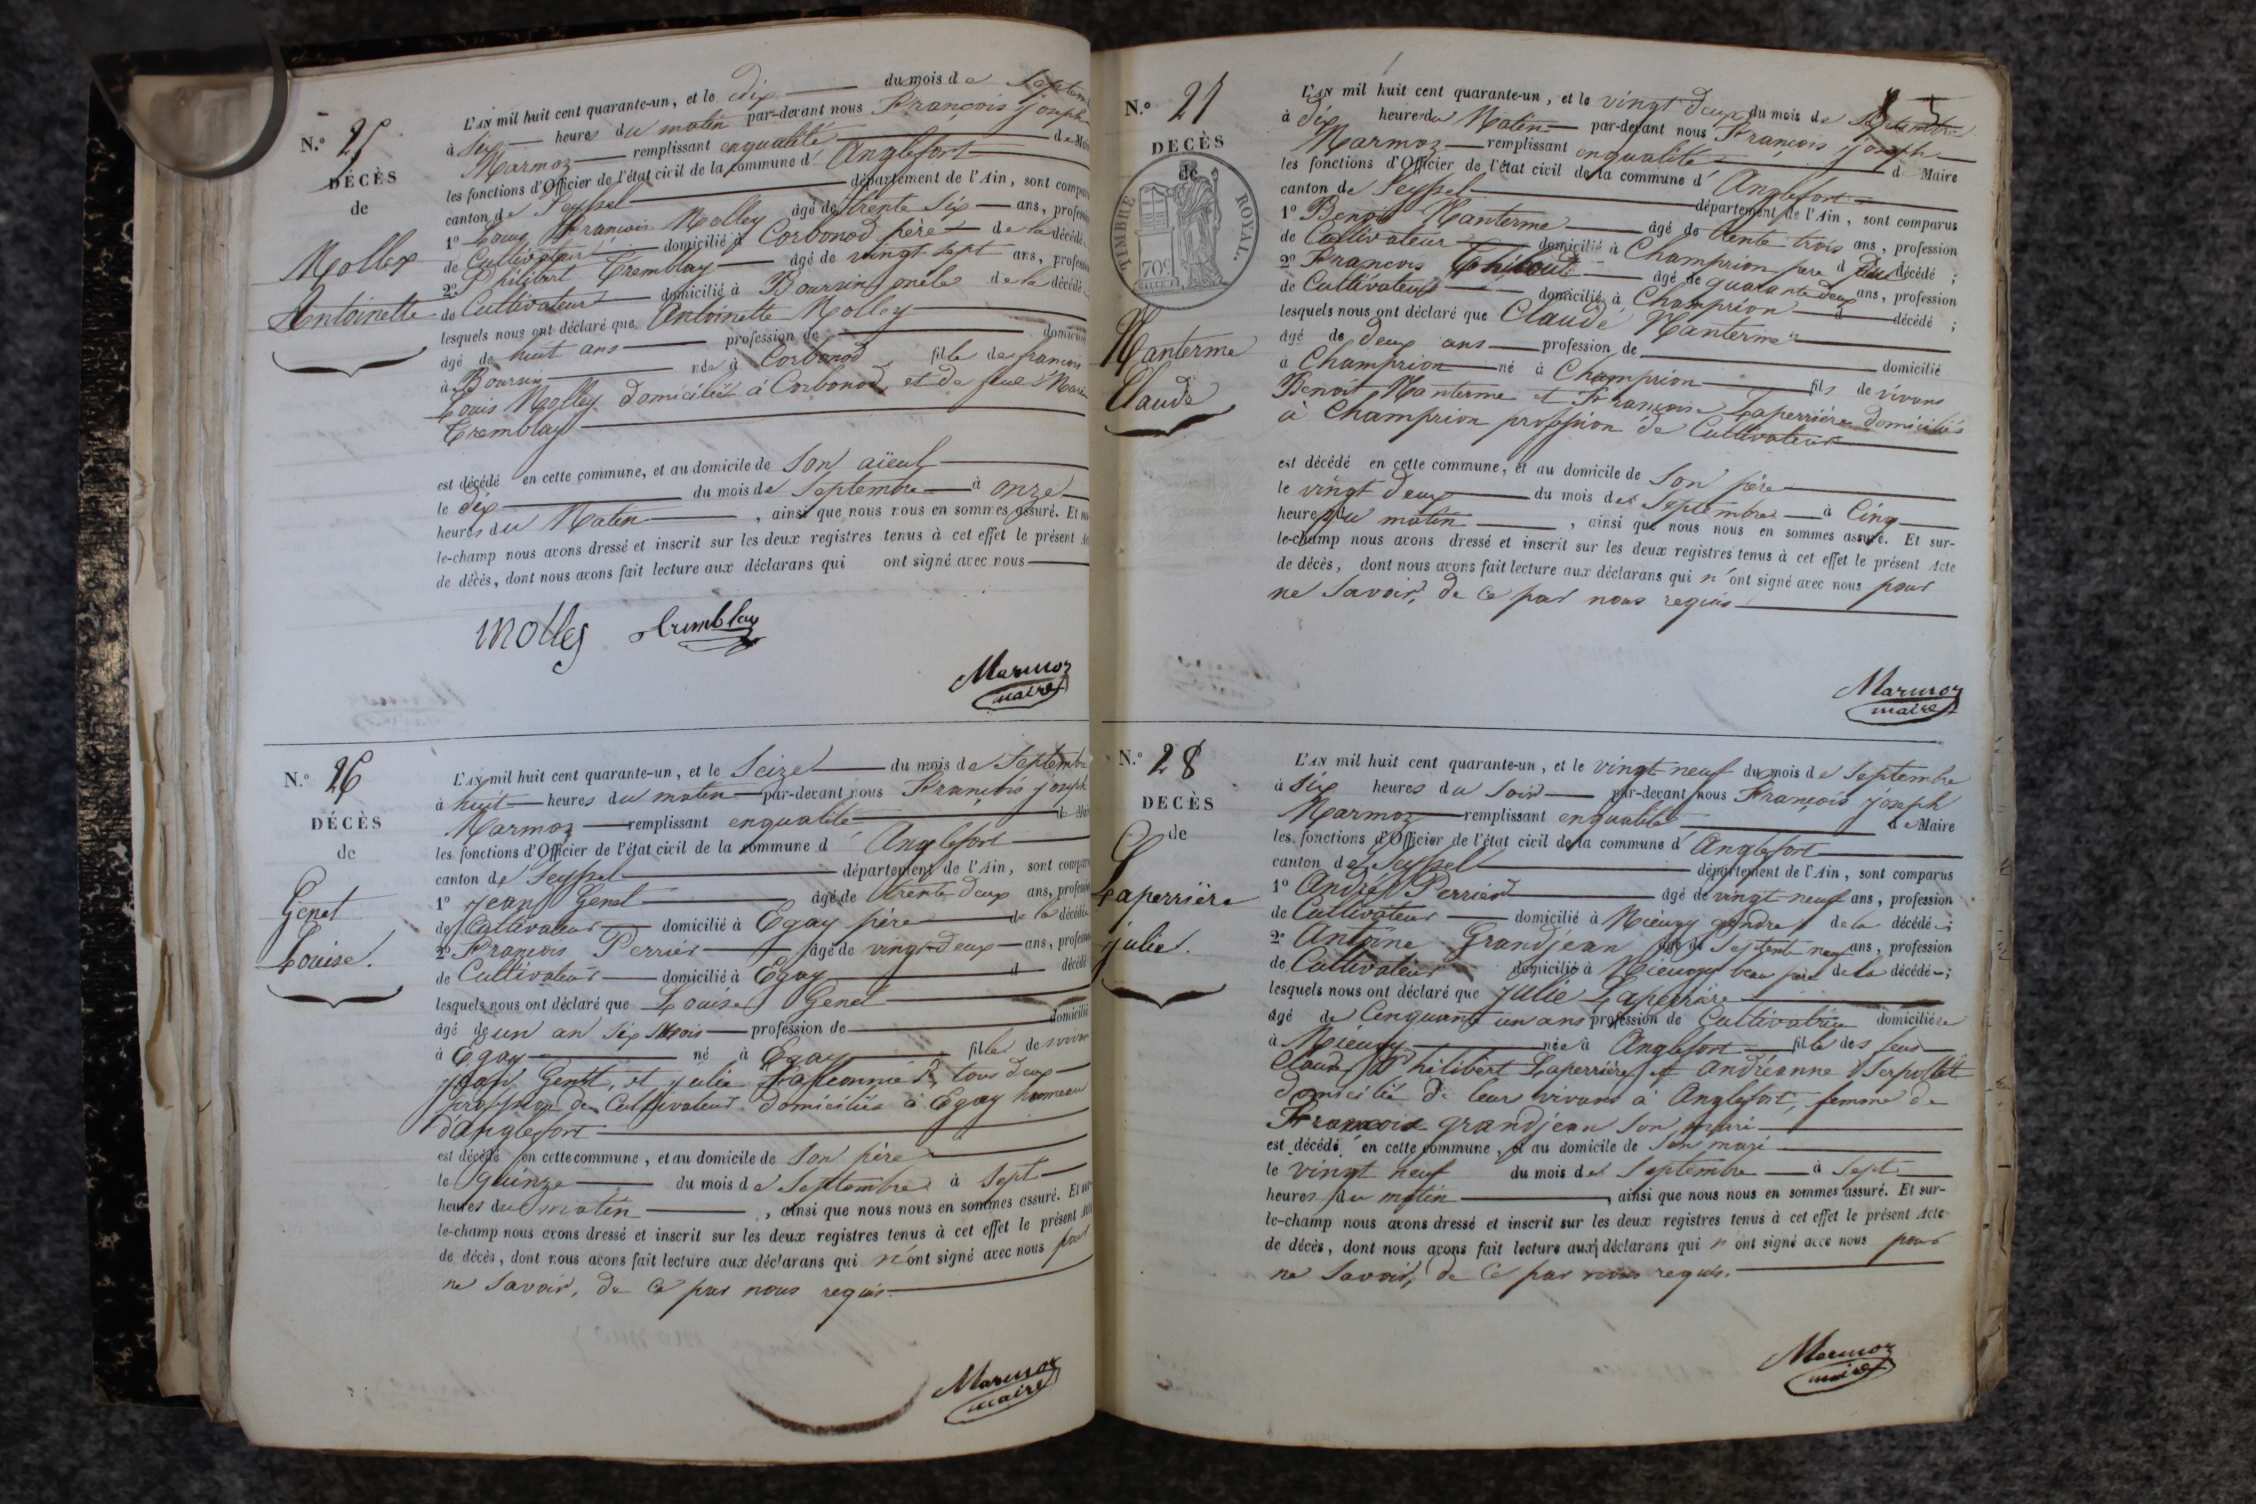 N.º 25
DÉCÈS
de
Mollex
Antoinette
L'AN mil huit cent quarante-un, et le dix du mois de Septem
à Six heures du matin par-devant nous François joseph
Marmoz remplissant enqualité de Mai
les fonctions d'Officier de l'état civil de la commune d' Anglefort
canton de Seyssel département de l'Ain, sont compar
1º Louis François Molley âgé de trente Six ans, profess
de Cultivateur domicilié à Corbonod père de la décédé
2º Philibert Tremblay âgé de vingt Sept ans, profess
de Cultivateur domicilié à Boursin oncle de la décédé
lesquels nous ont déclaré que Antoinette Molley
âgé de huit ans profession de domicilié
à Boursin née à Corbonod fille de françois
Louis Molley domicilié à Corbonod et de feue Marie
Tremblay
est décédé en cette commune, et au domicile de Son aïeul
le dix du mois de Septembre à onze
heures du Matin, ainsi que nous nous en sommes assuré. Et su
le-champ nous avons dressé et inscrit sur les deux registres tenus à cet effet le présent Ac
de décès, dont nous avons fait lecture aux déclarans qui ont signé avec nous
Molley Tremblay
Marmoz
maire
N.º 26
DÉCÈS
de
Genet
Louise.
L'AN mil huit cent quarante-un, et le Seize du mois de Septembre
à huit heures du matin par-devant nous François joseph
Marmoz remplissant enqualité de Mai
les fonctions d'Officier de l'état civil de la commune d' Anglefort
canton de Seyssel département de l'Ain, sont compar
1º Jean Genet âgé de trente deux ans, profess
de Cultivateur domicilié à Egay père de la décédée
2º François Perrier âgé de vingt-deux ans, profess
de Cultivateur domicilié à Egay d décédé
lesquels nous ont déclaré que Louise Genet
âgé de un an Six Mois profession de domicilié
à Egay né à Egay fille de vivans
jean Genet, et julie tous deux
profession de Cultivateur domiciliés à Egay hameau
d'anglefort
est décédé en cette commune, et au domicile de Son père
le quinze du mois de Septembre à Sept
heures du matin, ainsi que nous nous en sommes assuré. Et sur-
le-champ nous avons dressé et inscrit sur les deux registres tenus à cet effet le présent Act
de décès, dont nous avons fait lecture aux déclarans qui n'ont signé avec nous pour
ne Savoir, de ce par nous requis.
Marmoz
maire
N.º 27
DECÈS
de
TIMBRE ROYAL.
70c
Manterme
Claude
L'AN mil huit cent quarante-un, et le vingt deux du mois de Septembre
à dix heures du Matin par-devant nous François joseph
Marmoz remplissant enqualité d Maire
les fonctions d'Officier de l'état civil de la commune d' Anglefort
canton de Seyssel département de l'Ain, sont comparus
1º Benoit Manterme âgé de trente trois ans, profession
de Cultivateur domicilié à Champrion pere d du décédé ;
2º François Thibout âgé de quarante deux ans, profession
de Cultivateur domicilié à Champrion d décédé ;
lesquels nous ont déclaré que Claude Manterme
âgé de deux ans profession de domicilié
à Champrion né à Champrion fils de vivans
Benoit Manterme et Françoise Laperrière domiciliés
à Champrion profession de Cultivateur
est décédé en cette commune, et au domicile de Son père
le vingt deux du mois de Septembre à Cinq
heures du matin, ainsi que nous nous en sommes assuré. Et sur-
le-champ nous avons dressé et inscrit sur les deux registres tenus à cet effet le présent Acte
de décès, dont nous avons fait lecture aux déclarans qui n'ont signé avec nous pour
ne Savoir, de ce par nous requis
Marmoz
maire
N.º 28
DECÈS
de
Laperrière
julie.
L'AN mil huit cent quarante-un, et le vingt neuf du mois de Septembre
à Six heures du Soir par-devant nous François joseph
Marmoz remplissant enqualité de Maire
les fonctions d'Officier de l'état civil de la commune d' Anglefort
canton de Seyssel département de l'Ain, sont comparus
1º André Perrier âgé de vingt neuf ans, profession
de Cultivateur domicilié à Mieugy gendre de la décédé ;
2º Antoine Grandjean âgé de Septente neuf ans, profession
de Cultivateur domicilié à Mieugy beau père de la décédé ;
lesquels nous ont déclaré que Julie Laperrière
âgé de Cinquante un ans profession de Cultivatrice domiciliée
à Mieugy née à Anglefort fille des feus
Claude Philibert Laperrière et andréanne Serpollet
domicilié de leur vivans à Anglefort, femme de
François grandjean Son mari
est décédé en cette commune, et au domicile de Son mari
le vingt neuf du mois de Septembre à Sept
heures du matin, ainsi que nous nous en sommes assuré. Et sur-
le-champ nous avons dressé et inscrit sur les deux registres tenus à cet effet le présent Acte
de décès, dont nous avons fait lecture aux déclarans qui n'ont signé avec nous pour
ne Savoir, de ce par nous requis.
Marmoz
maire